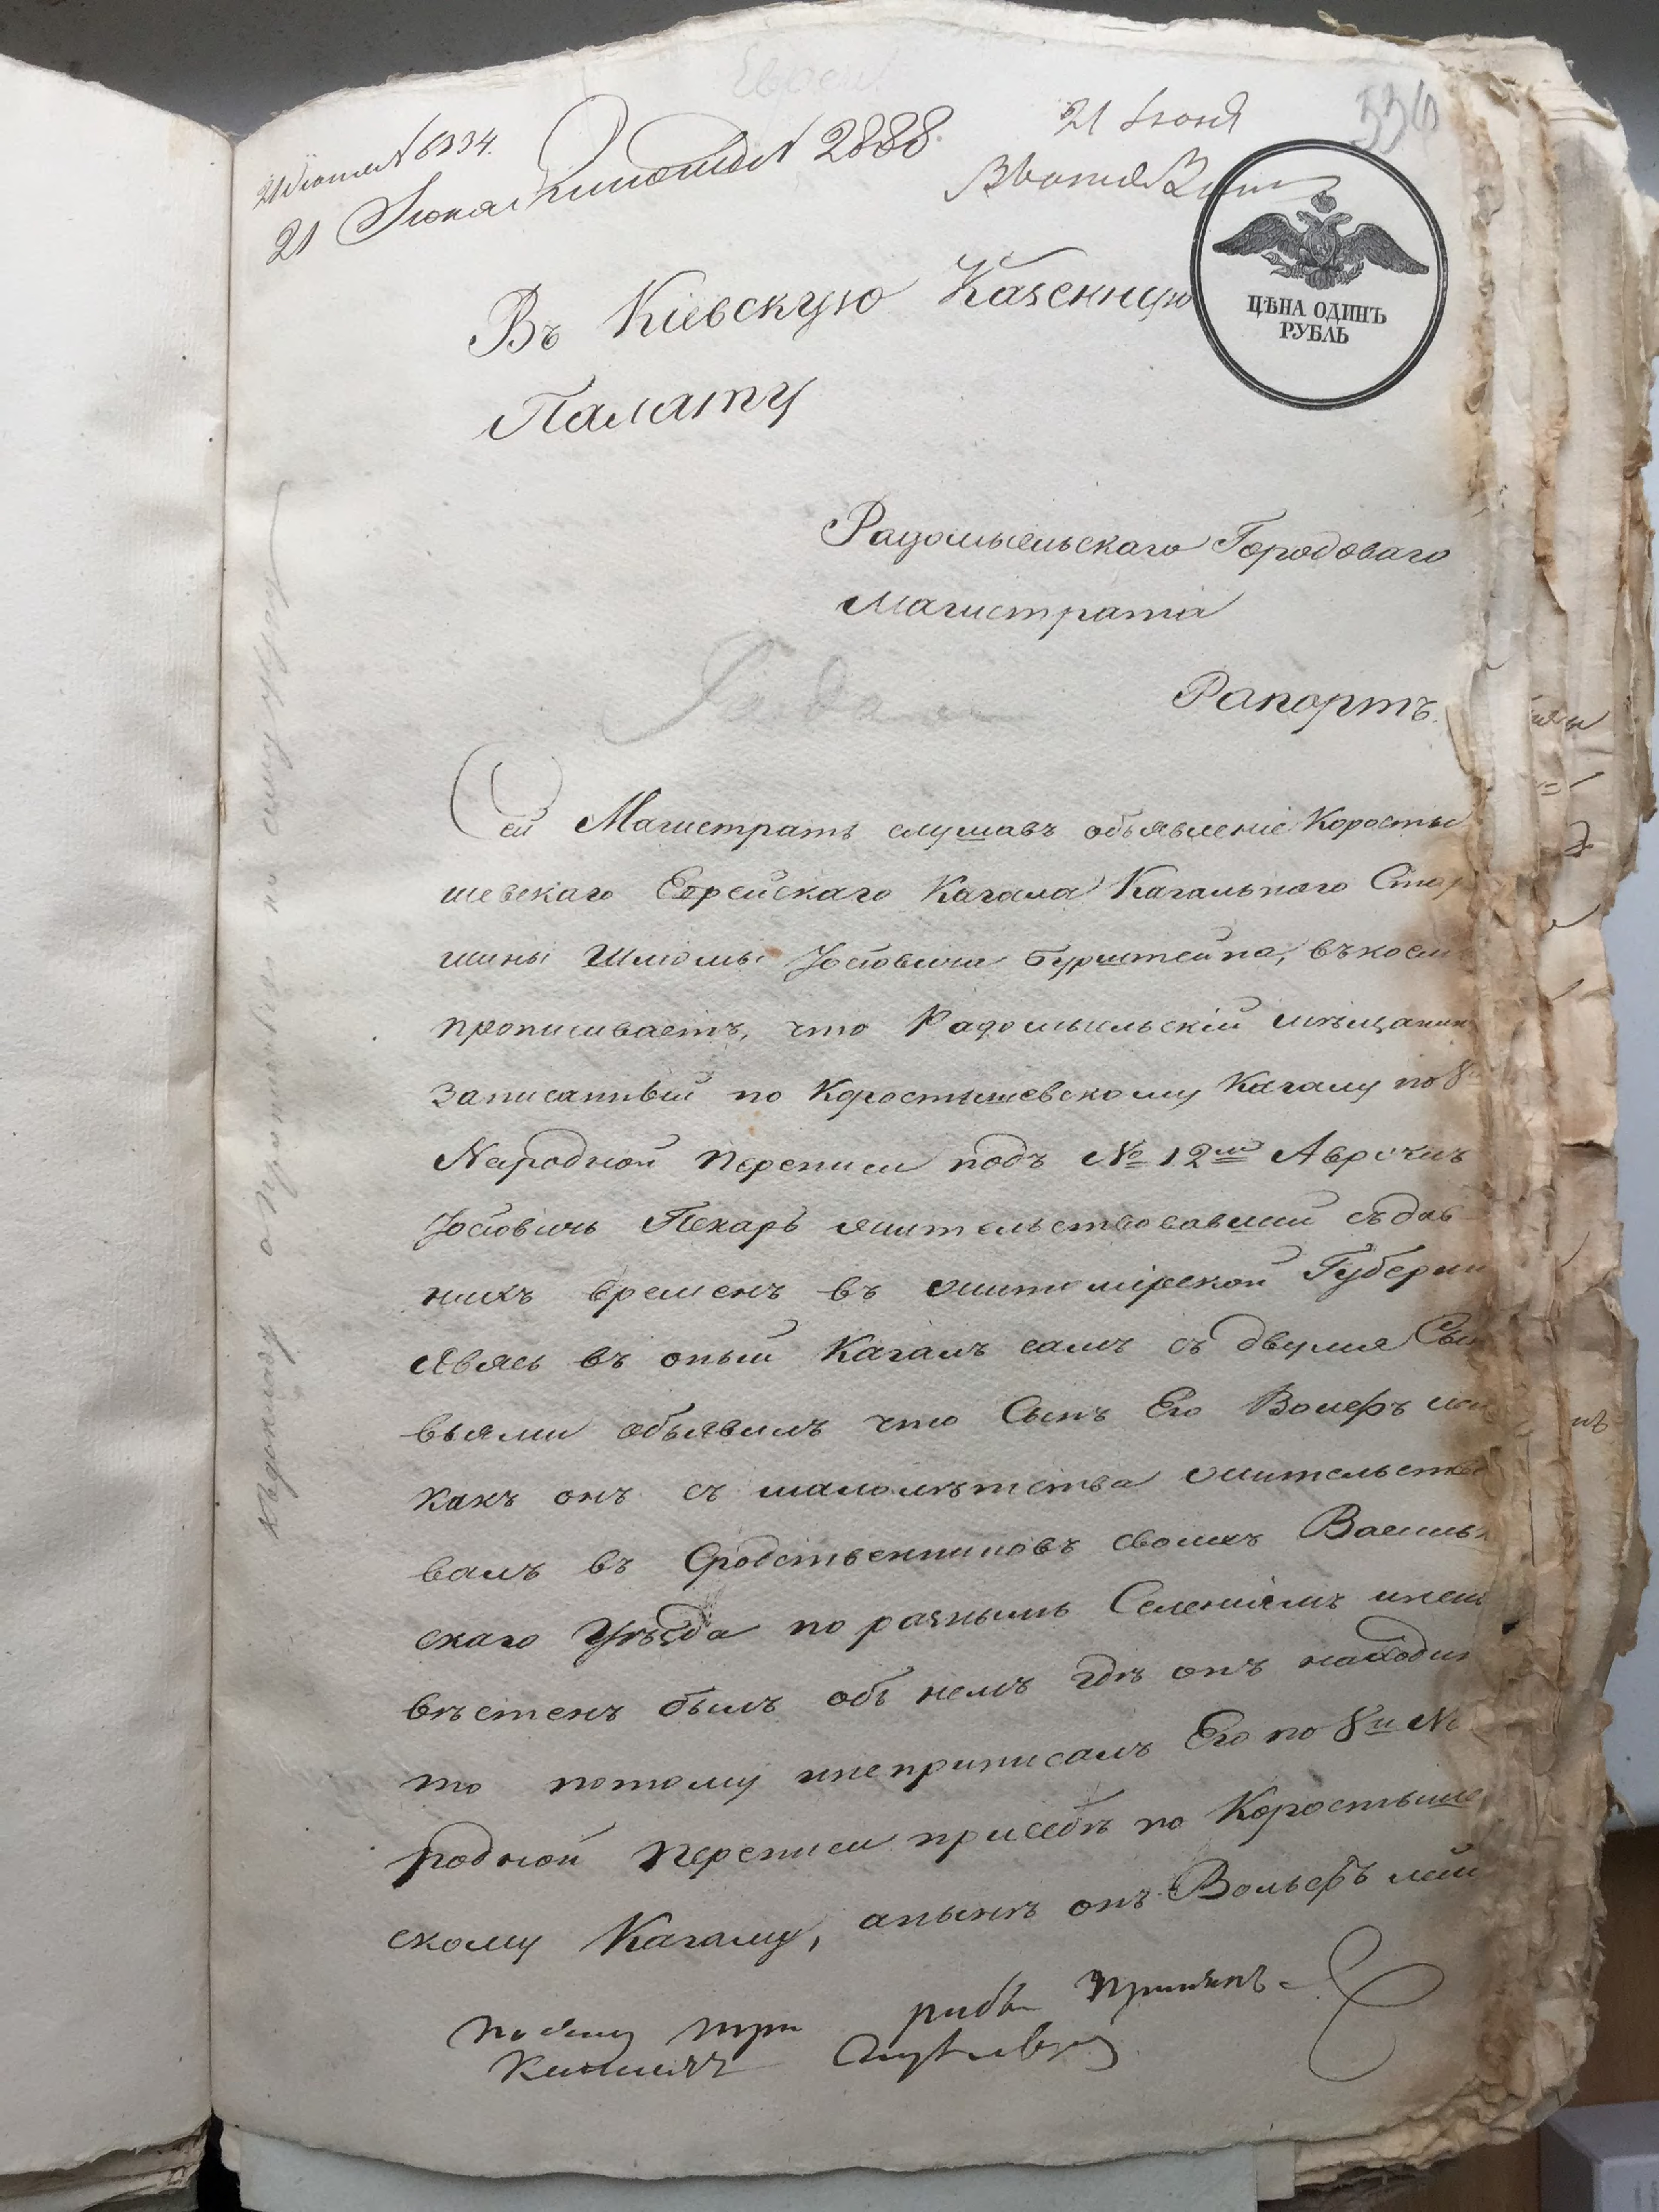 Евреи
21 Июня
336
21 Июня № 6334.
21 Июня № 2888.
ЦѢНА ОДИНЪ
РУБЛЬ
Въ Кіевскую Казенную
Палату
Радомысльскаго Городоваго
Магистрата
Рапортъ.
Сей Магистратъ слушавъ объявленіе Коросты
шевскаго Еврейскаго Кагала Кагальнаго Стар
шины Шліомы Іосіовича Бурштейна, въ коем
прописываетъ, что Радомысльскій мѣщанин
записанный по Коростышевскому Кагалу по 8й
Народной переписи подъ № 12м Аврумъ
Іосіовичъ Пекаръ жительствовавшій съ дав
нихъ временъ въ житомірской Губерніи
явясь въ оный Кагалъ самъ съ двумя Сын
вьями объявилъ что Сынъ Его Вольфъ
какъ онъ съ малолѣтства жительство
валъ въ Сродственниковъ своихъ Васильк
скаго Уѣзда по разнымъ Селеніямъ инеиз
вѣстенъ былъ объ немъ гдѣ онъ находил
то потому инеприписалъ Его по 8й На
родной переписи присебѣ по Коростыше
скому Кагалу, анынѣ онъ Вольфъ
по сему